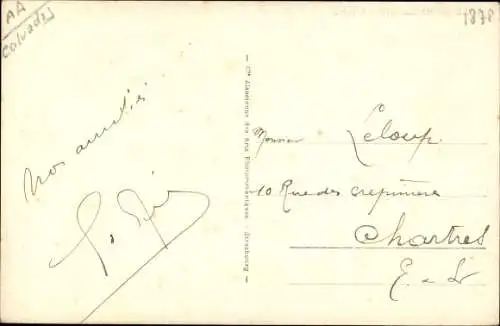 AA
Calvados
1878
Nos amitiés
Cie Alsacienne des Arts Photomécaniques - Strasbourg
Monsieur Leloup.
10 Rue des crepinières
Chartres
E. & Lr